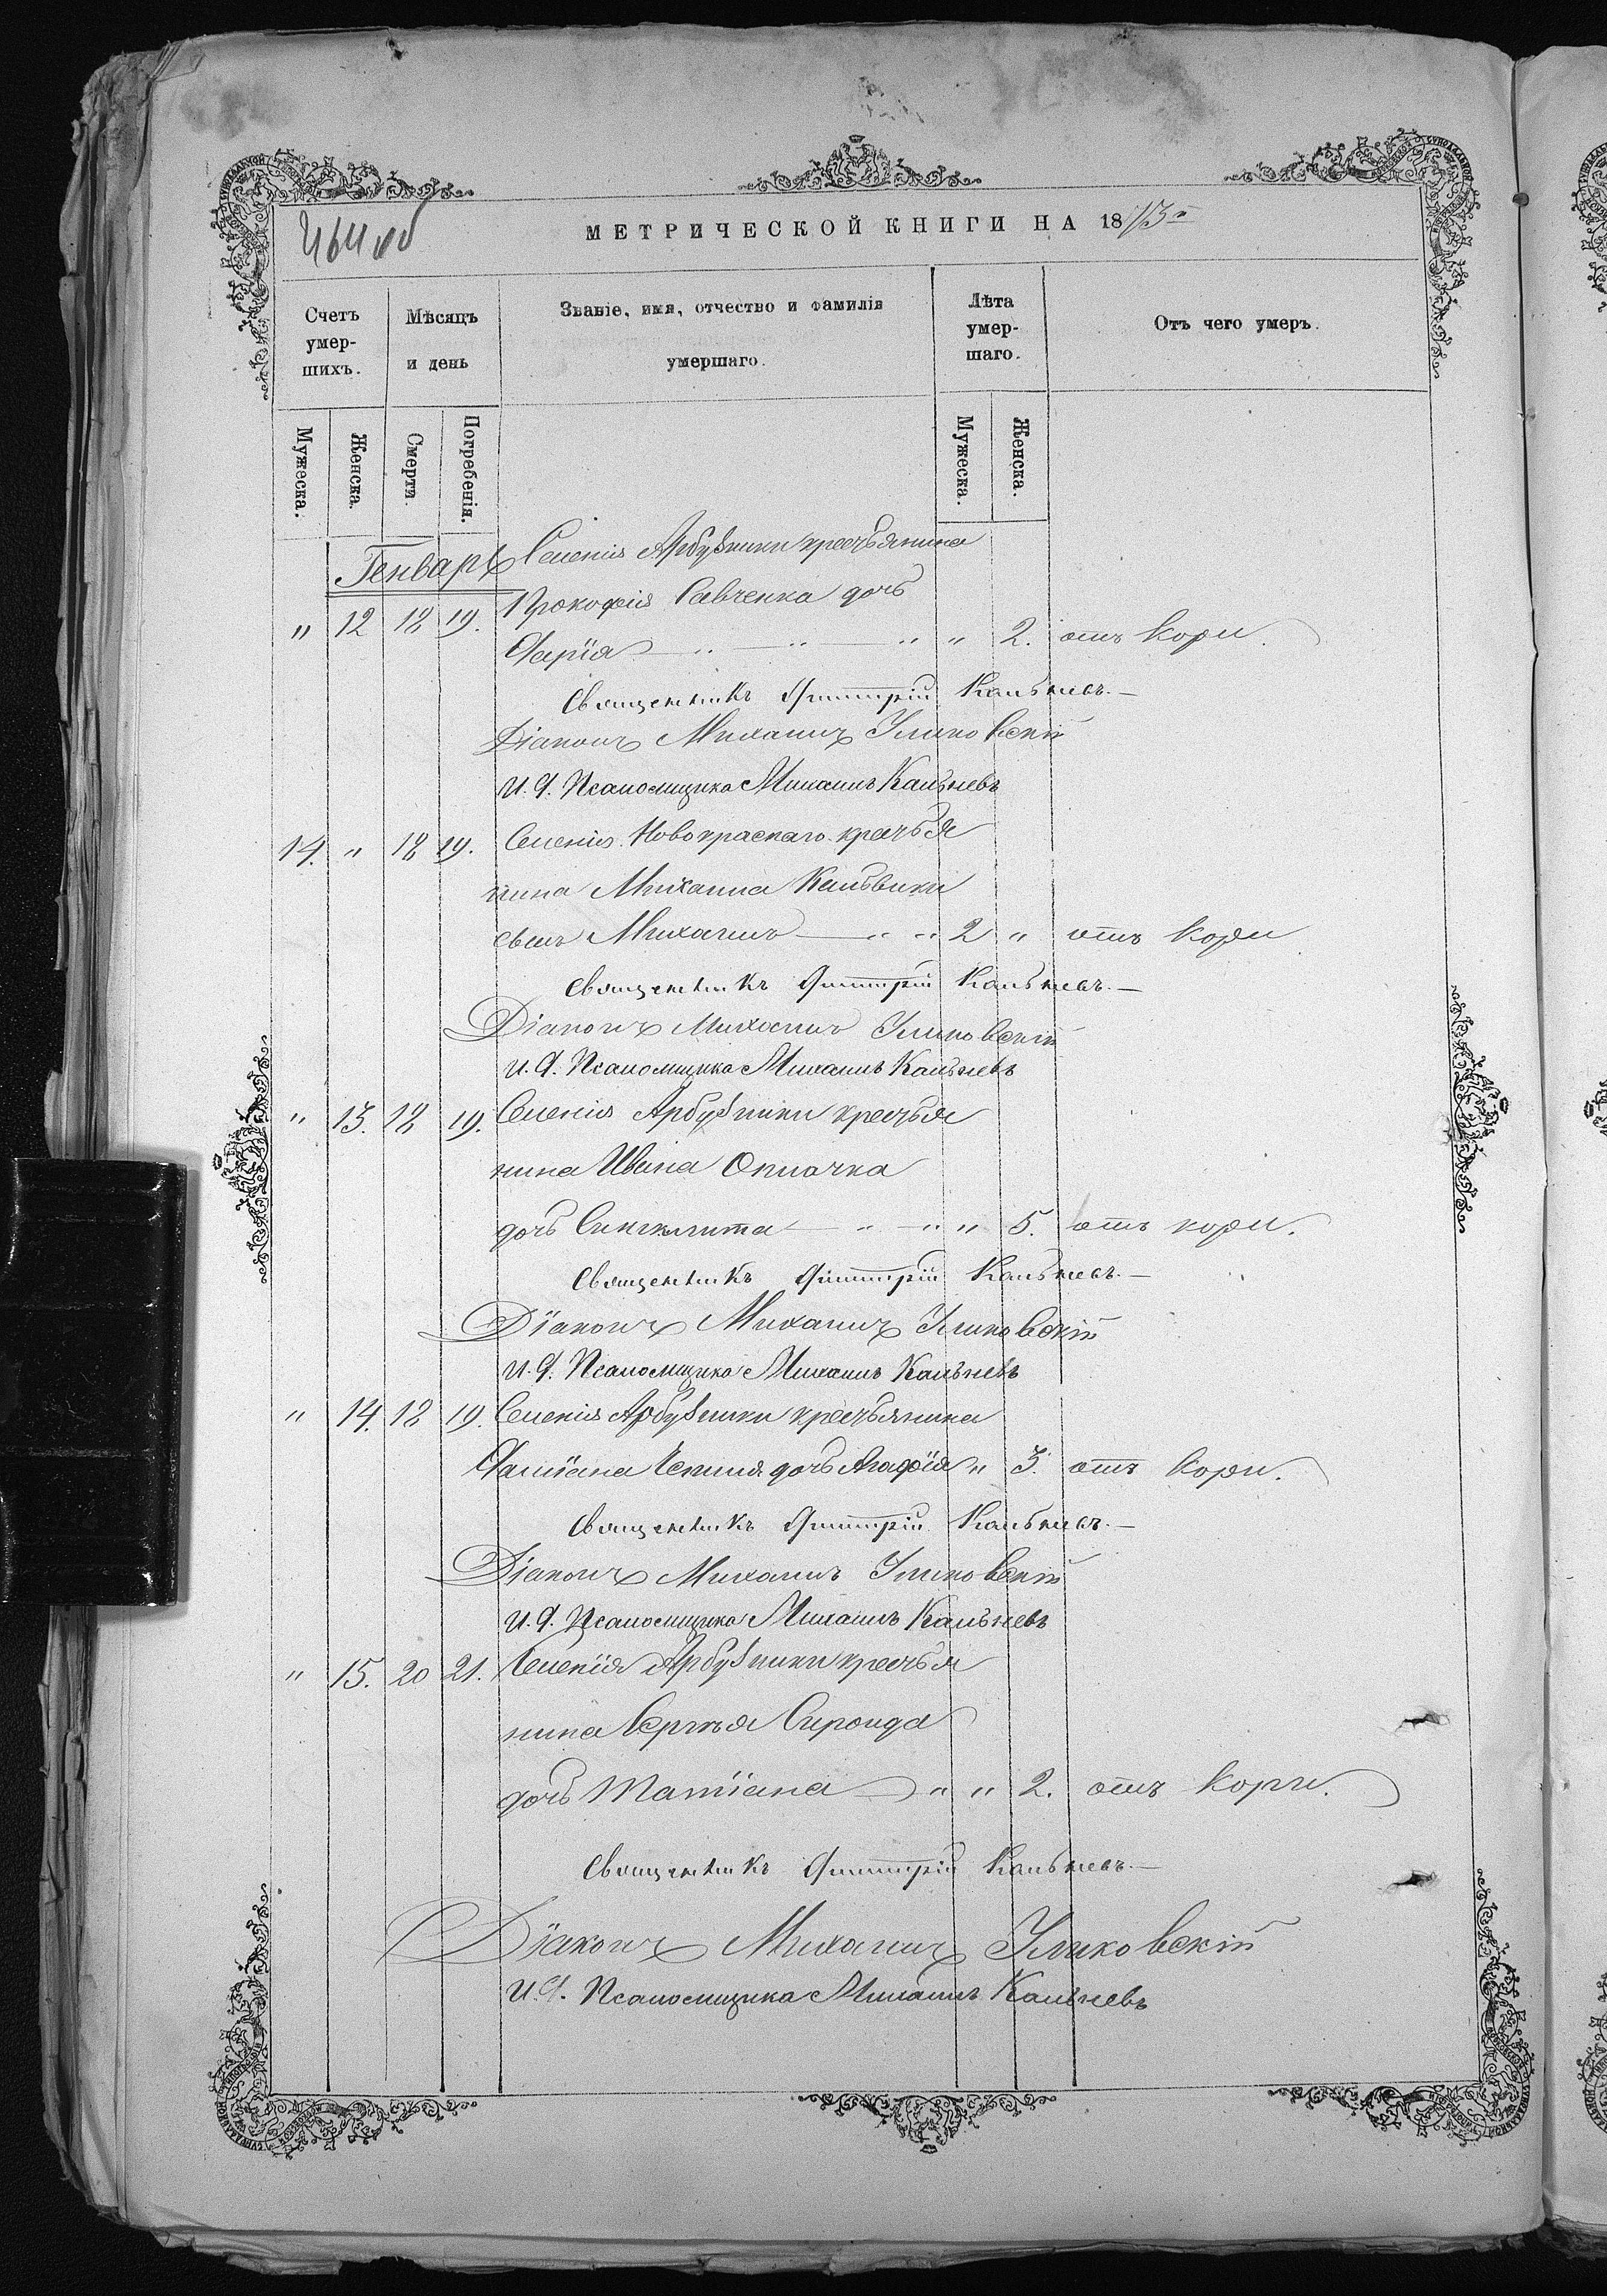 464 об
МЕТРИЧЕСКОЙ КНИГИ НА 1873й
Счетъ умер-шихъ.
Мѣсяцъ и день
Званіе, имя, отчество и фамилія умершаго.
Лѣта умер-шаго.
Отъ чего умеръ.
Мужеска. Женска. Смерти. Погребенія. Мужеска. Женска.
Генварь Селенія Арбузинки крестьянина
Прокофія Савченка дочь
" 12 18 19.
Дарія " " 2. отъ кори.
Священникъ Димитрій Кальневъ.
Діаконъ Михаилъ Уликовскій
И. Д. Псаломщика Михаилъ Кальневъ
14. " 18 19. Селенія Новокраснаго крестья
нина Михаила
сынъ Михаилъ " " 2 " отъ кори
Священникъ Димитрій Кальневъ.
Діаконъ Михаилъ Уликовскій
И. Д. Псаломщика Михаилъ Кальневъ
" 13. 18 19. Селенія Арбузинки крестья
нина Ивана
дочь Синклита " " " 5. отъ кори.
Священникъ Димитрій Кальневъ.
Діаконъ Михаилъ Уликовскій
И. Д. Псаломщика Михаилъ Кальневъ
" 14. 18 19. Селенія Арбузинки крестьянина
Даміана дочь Агафія " 3. отъ кори.
Священникъ Димитрій Кальневъ.
Діаконъ Михаилъ Уликовскій
И. Д. Псаломщика Михаилъ Кальневъ
" 15. 20 21. Селенія Арбузинки крестья
нина Сергѣя
дочь Татіана " " 2. отъ кори.
Священникъ Димитрій Кальневъ.
Діаконъ Михаилъ Уликовскій
И. Д. Псаломщика Михаилъ Кальневъ